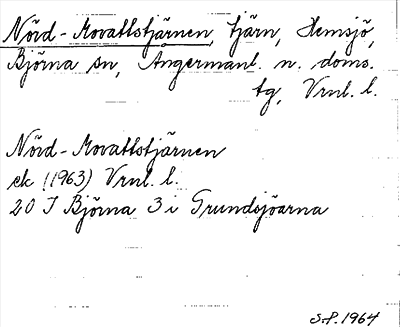 Nörd-Movattstjärnen, tjärn, Hemsjö,
Björna sn, Ångermanl. n. doms.
tg, Vrnl. l.
Nörd-Movattstjärnen
ek (1963) Vrnl. l.
20 I Björna 3 i Grundsjöarna
S.P. 1964